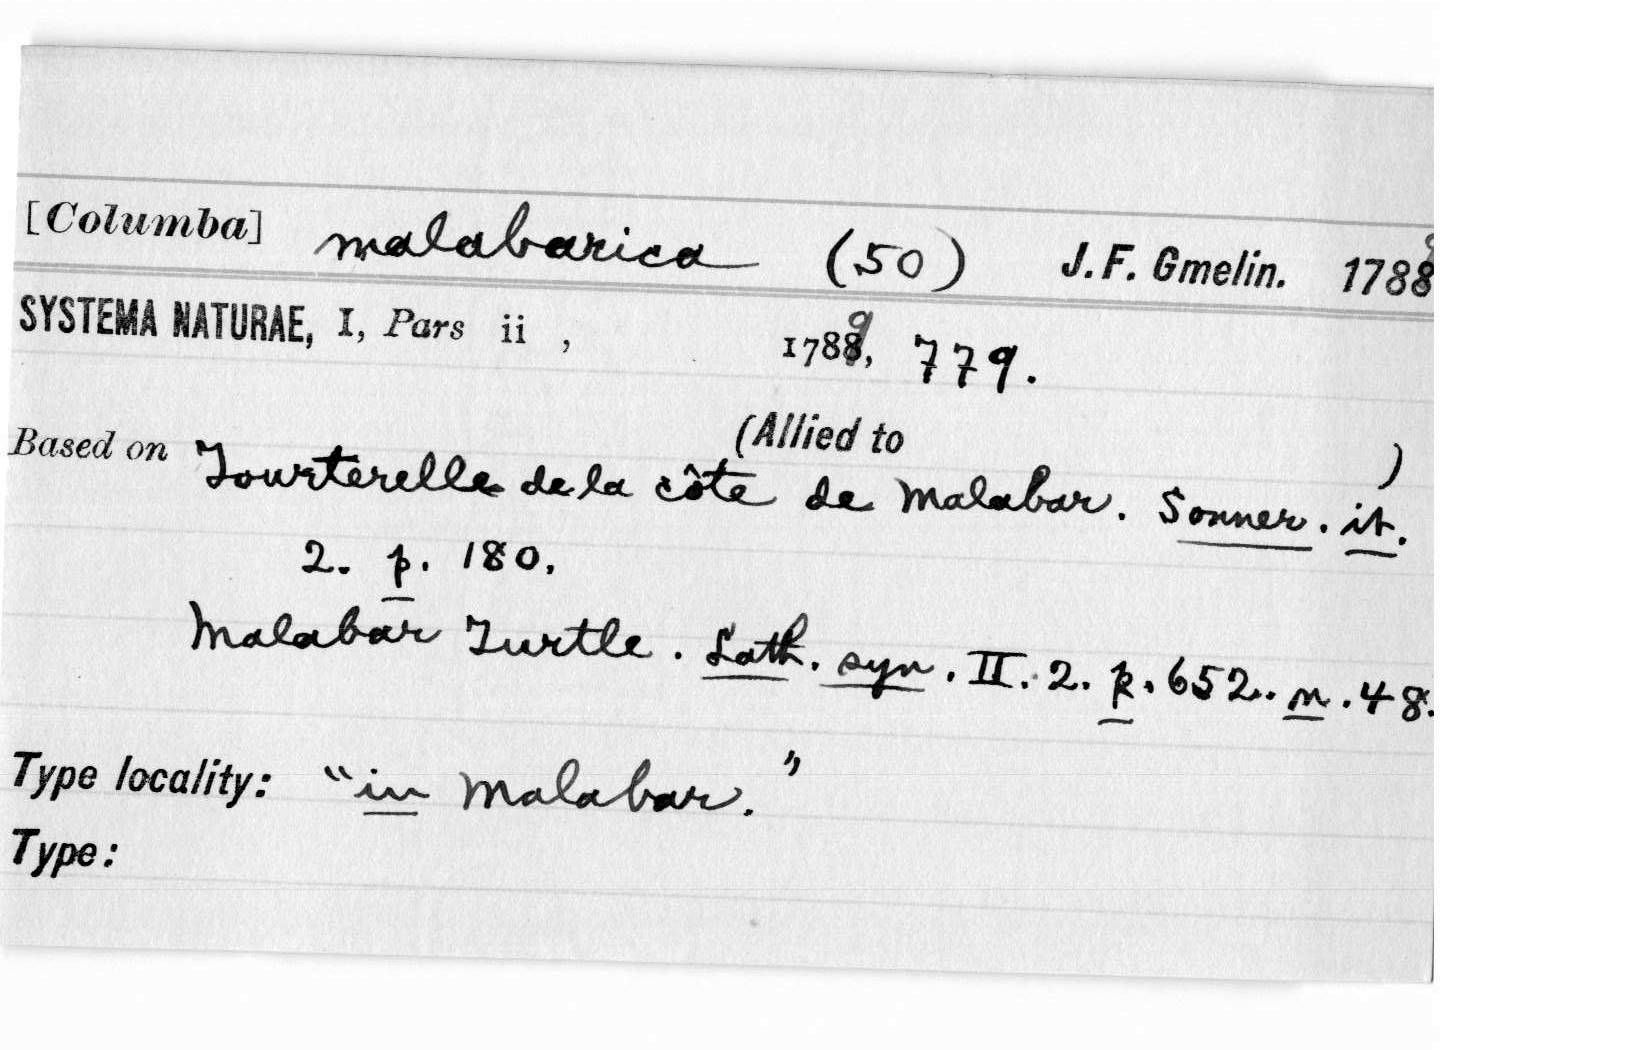 [Columba] malabarica (50) J. F. Gmelin. 1788
SYSTEMA NATURAE, I, Pars ii , 1789, 779.
(Allied to )
Based on Tourterelle de la côte de Malabar. Sonner. it.
2. p. 180.
Malabar Turtle. Lath. syn. II. 2. p. 652. n. 48.
Type locality: "in Malabar."
Type: